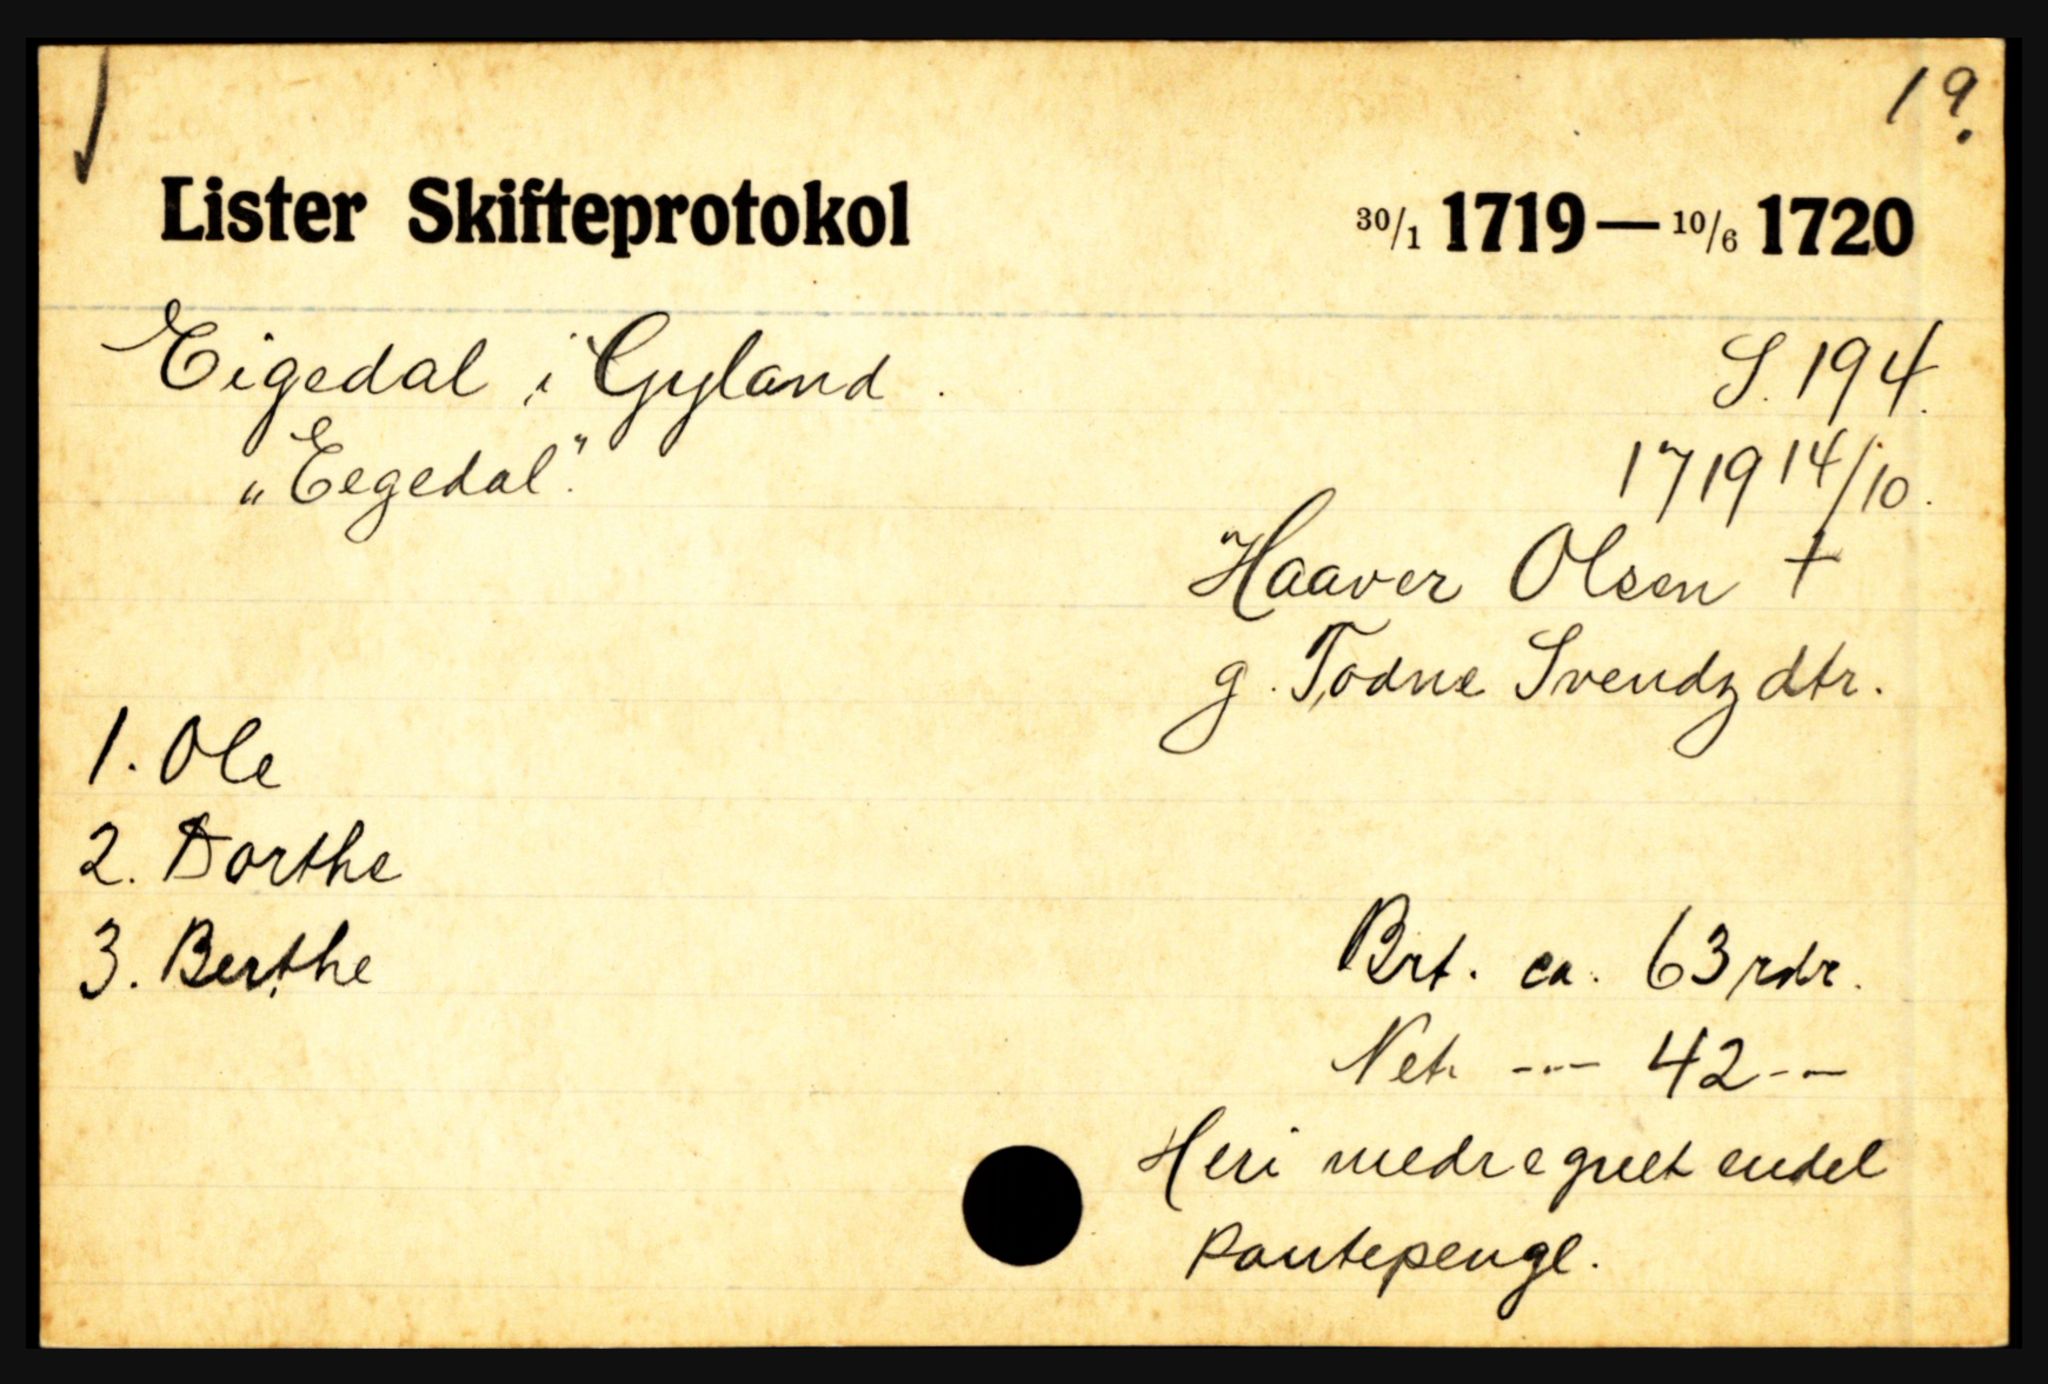 19.
Lister Skifteprotokol 30/1 1719 — 10/6 1720
Eigedal i Gyland. S. 194.
„Eegedal". 1719 14/10.
Haaver Olsen †
g. Todne Svendz dtr.
1. Ole
2. Dorthe
3. Berthe Brt. ca. 63 rdr.
Net. --- 42 --
Heri medregnet endel
Pantepenge.